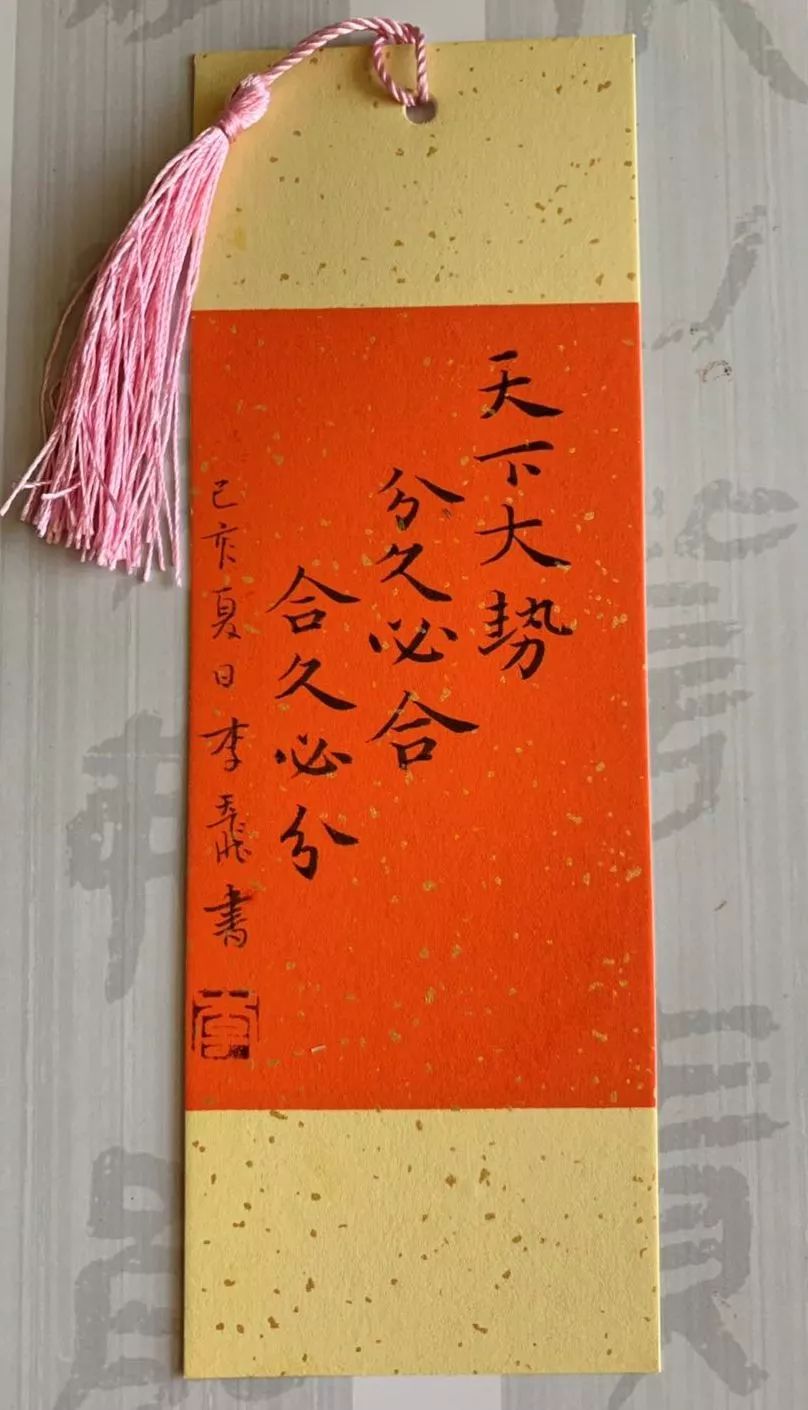 天下大势
分久必合
合久必分
己亥夏日李飛书